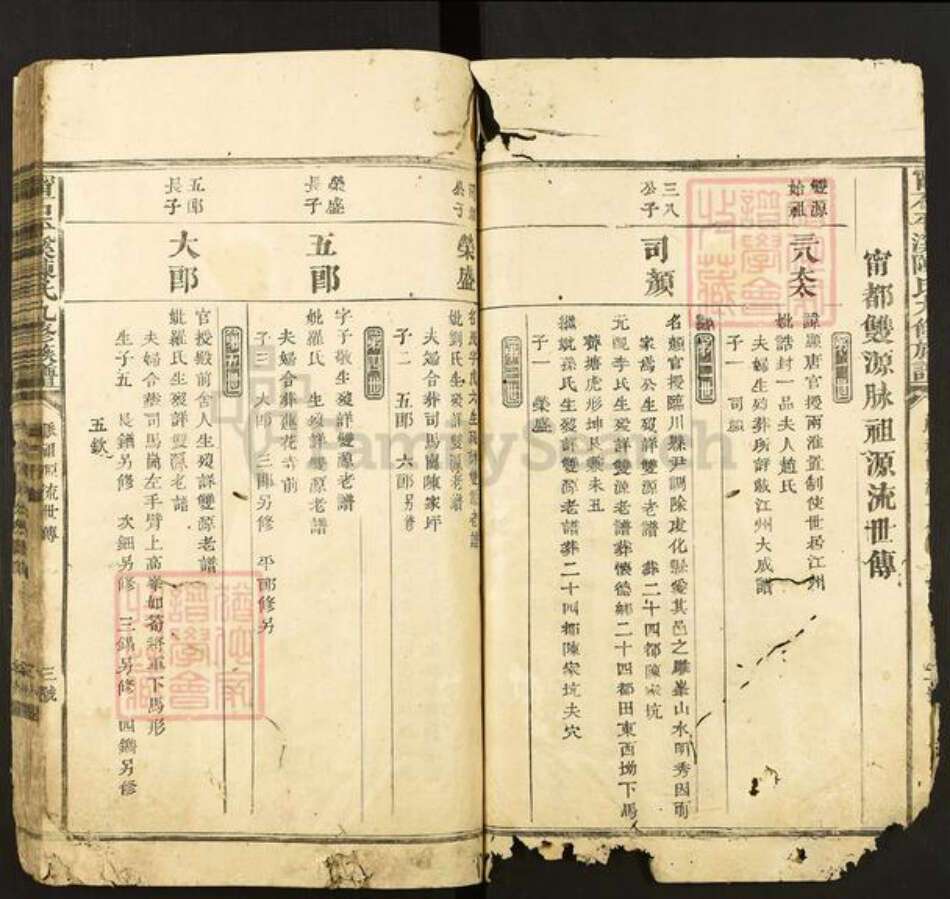 甯都雙源脉祖源流世傳
雙源
始祖
三八太
諱顯唐官授兩淮置制使世居江州
妣誥封一品夫人趙氏
夫婦生歿葬所詳戴江州大成譜
子一 司顏
三八
公子
司顏
名顏官授臨川縣尹調除虔化縣愛其邑之雕峯山水明秀因而
家焉公生歿詳雙源老譜 葬二十四都陳家坑
元配李氏生歿詳雙源老譜葬懷德鄉二十四都田東西坳下馬
齊塘虎形坤艮兼未丑
繼妣孫氏生歿詳雙源老譜葬二十四都陳家坑夫穴
子一 榮盛
公子
榮盛
妣劉氏生歿詳雙源老譜
夫婦合葬司馬崗陳家坪
子二 五郎 六郎另修
榮盛
長子
五郎
字子敬生歿詳雙源老譜
妣羅氏 生歿詳雙源老譜
夫婦合葬蓮花寺前
子三 大郎 三郎另修 平郎修另
五郎
長子
大郎
官授殿前舍人生歿詳雙源老譜
妣羅氏生歿詳雙源老譜
夫婦合葬司馬崗左手臂上高峯如筍將軍下馬形
生子五 長鏑另修 次鈿另修 三錫另修 四鐫另修
五欽
脉祖源流世傳
三號
FamilySearch